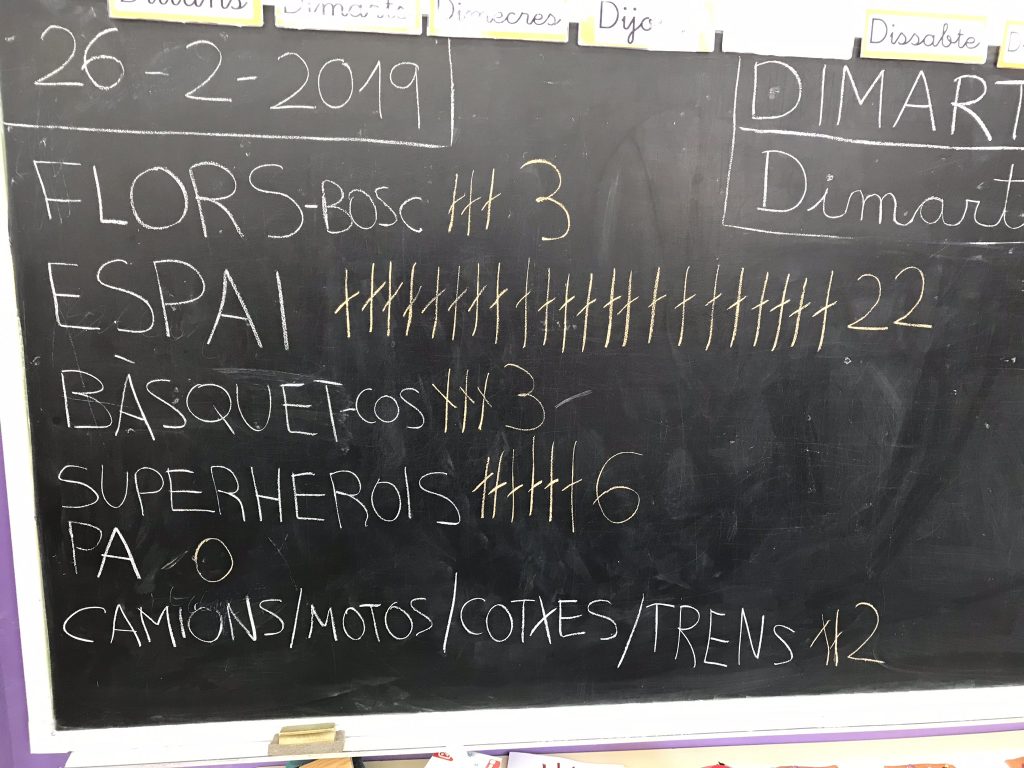 Dilluns Dimarts Dimecres Dijo Dissabte
26-2-2019
DIMART
Dimart
FLORS-BOSC 3
ESPAI 22
BÀSQUET-COS 3 -
SUPERHEROIS 6
PA 0
CAMIONS/MOTOS/COTXES/TRENS 2